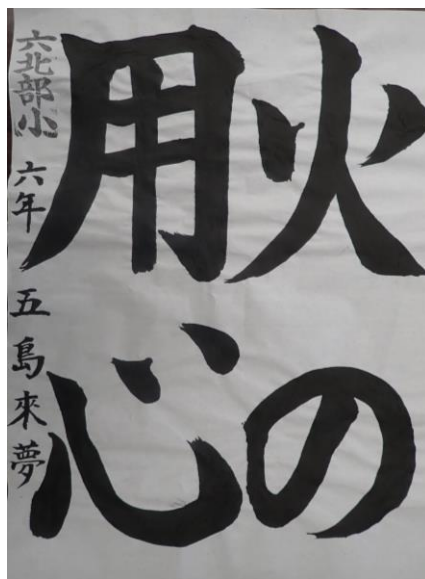 火の
用心
六北部小 六年 五島來夢